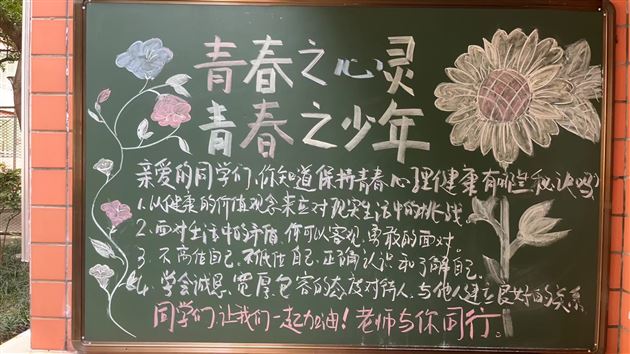 青春之心灵
青春之少年
亲爱的同学们,你知道保持青春心理健康有哪些秘诀吗?
1.从健康的价值观念来应对现实生活中的挑战.
2.面对生活中的矛盾,你可以客观,勇敢的面对.
3.不高估自己,不低估自己,正确认识和了解自己.
4.学会诚恳、宽厚、包容的态度对待人,与他人建立良好的关系
同学们,让我们一起加油!老师与你同行.